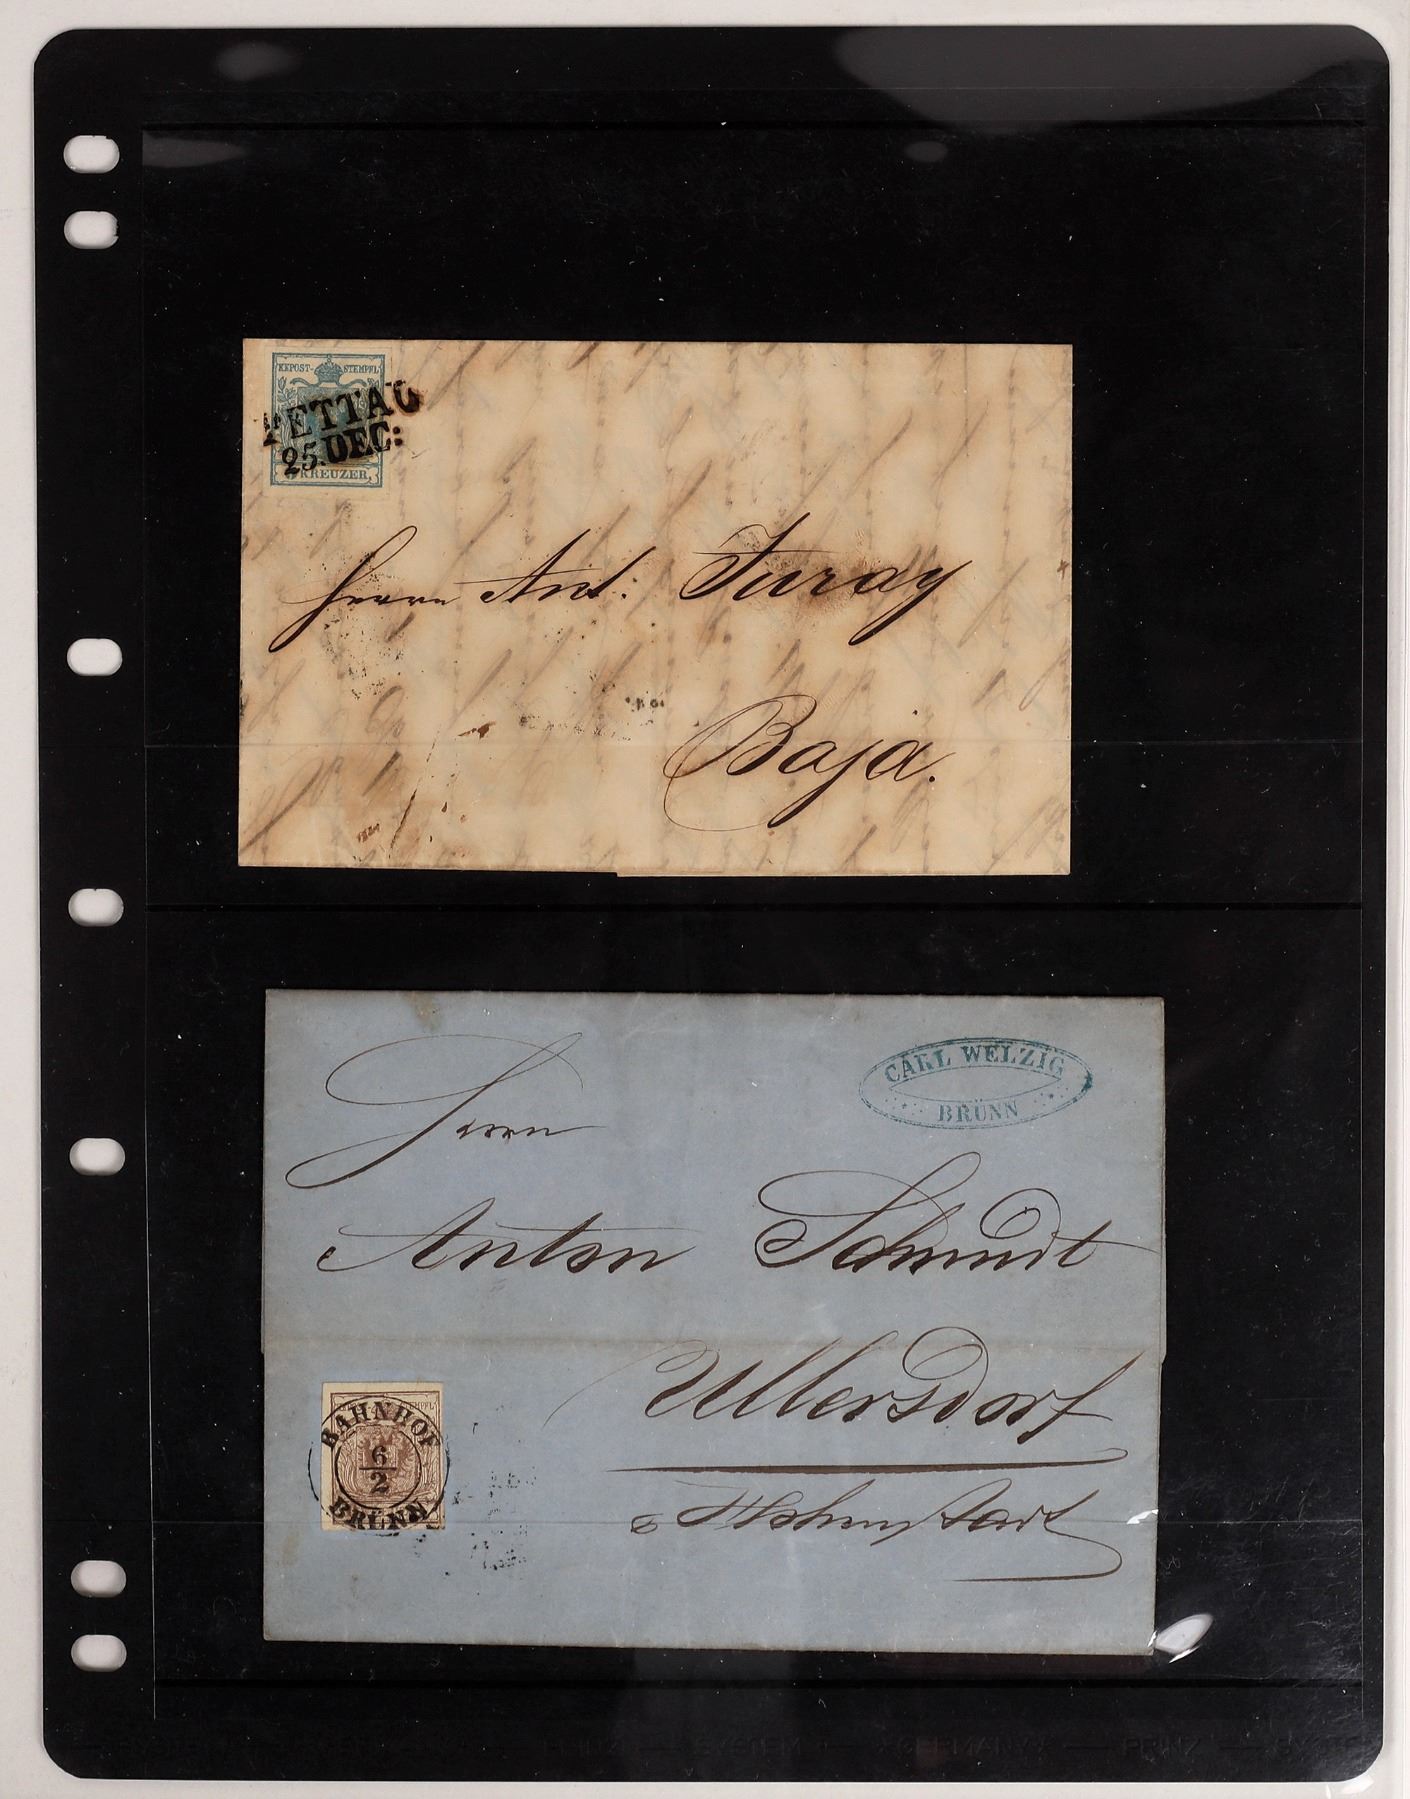 KKPOST-STEMPEL
PETTAU
25. DEC:
9 KREUZER
Herrn Ant. Turay
Baja.
CARL WELZIG
BRÜNN
Herrn
Anton Schmidt
Ullersdorf
BAHNHOF
6
2
BRÜNN
PRINZ SYSTEM GERMANY PRINZ